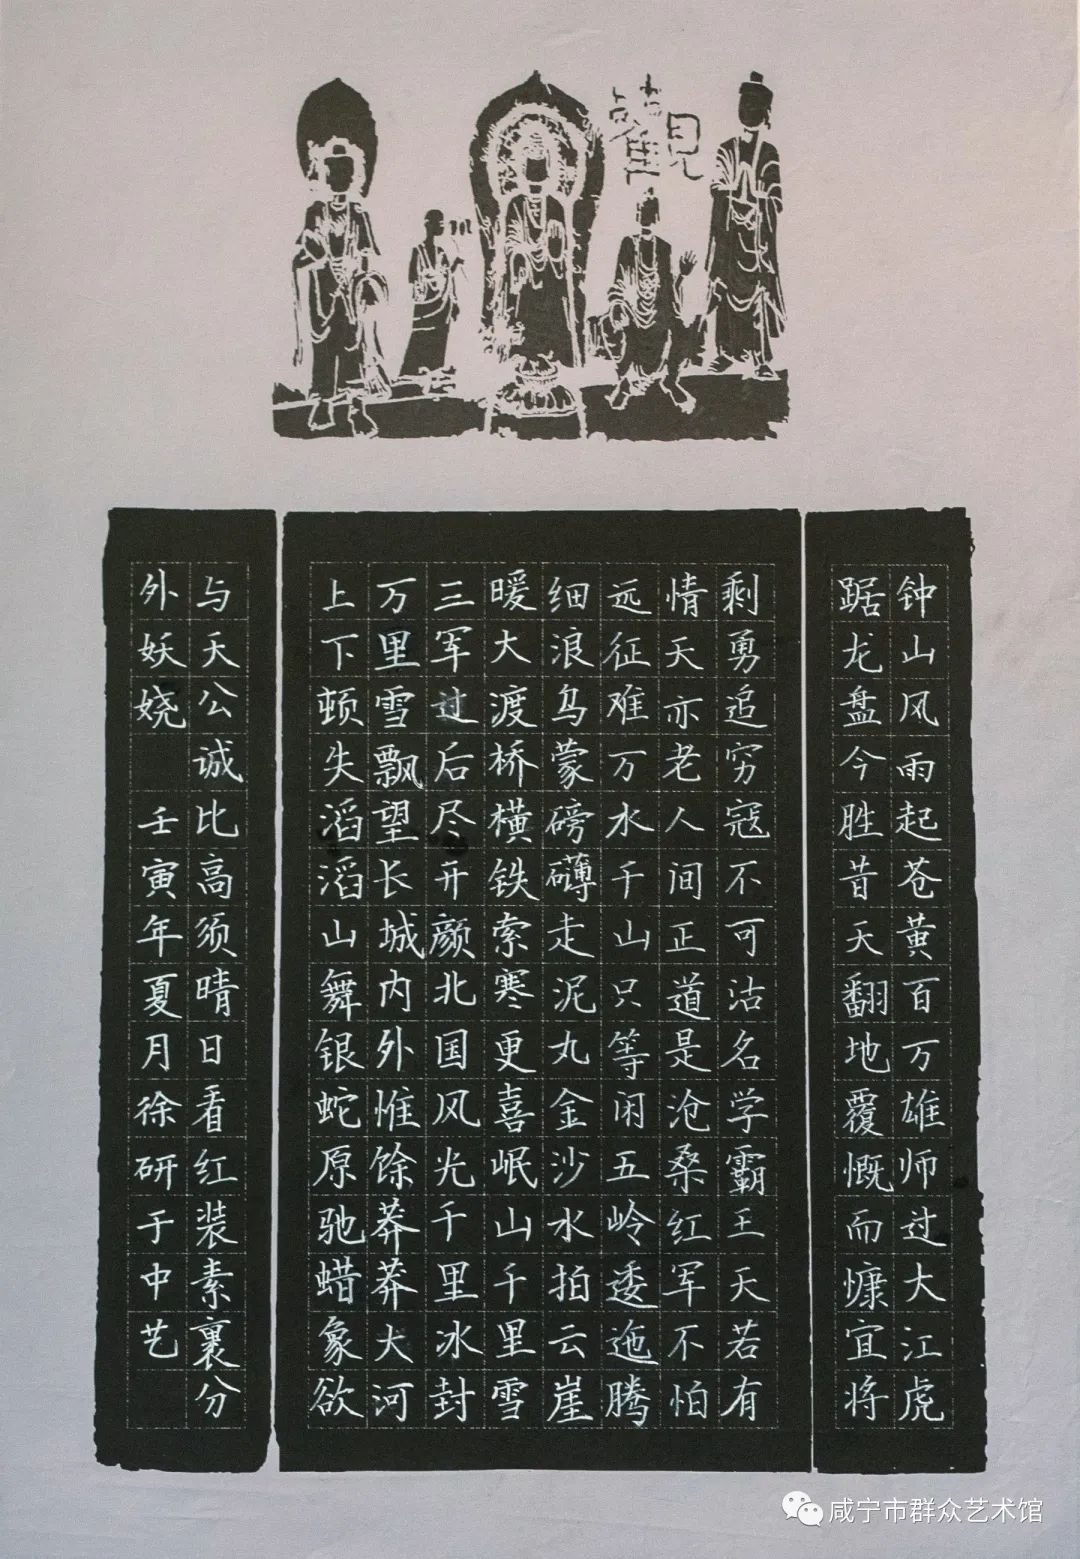 觀
钟山风雨起苍黄百万雄师过大江虎
踞龙盘今胜昔天翻地覆慨而慷宜将
剩勇追穷寇不可沽名学霸王天若有
情天亦老人间正道是沧桑红军不怕
远征难万水千山只等闲五岭逶迤腾
细浪乌蒙磅礴走泥丸金沙水拍云崖
暖大渡桥横铁索寒更喜岷山千里雪
三军过后尽开颜北国风光千里冰封
万里雪飘望长城内外惟馀莽莽大河
上下顿失滔滔山舞银蛇原驰蜡象欲
与天公诚比高须晴日看红装素裹分
外妖娆 壬寅年夏月徐研于中艺
咸宁市群众艺术馆